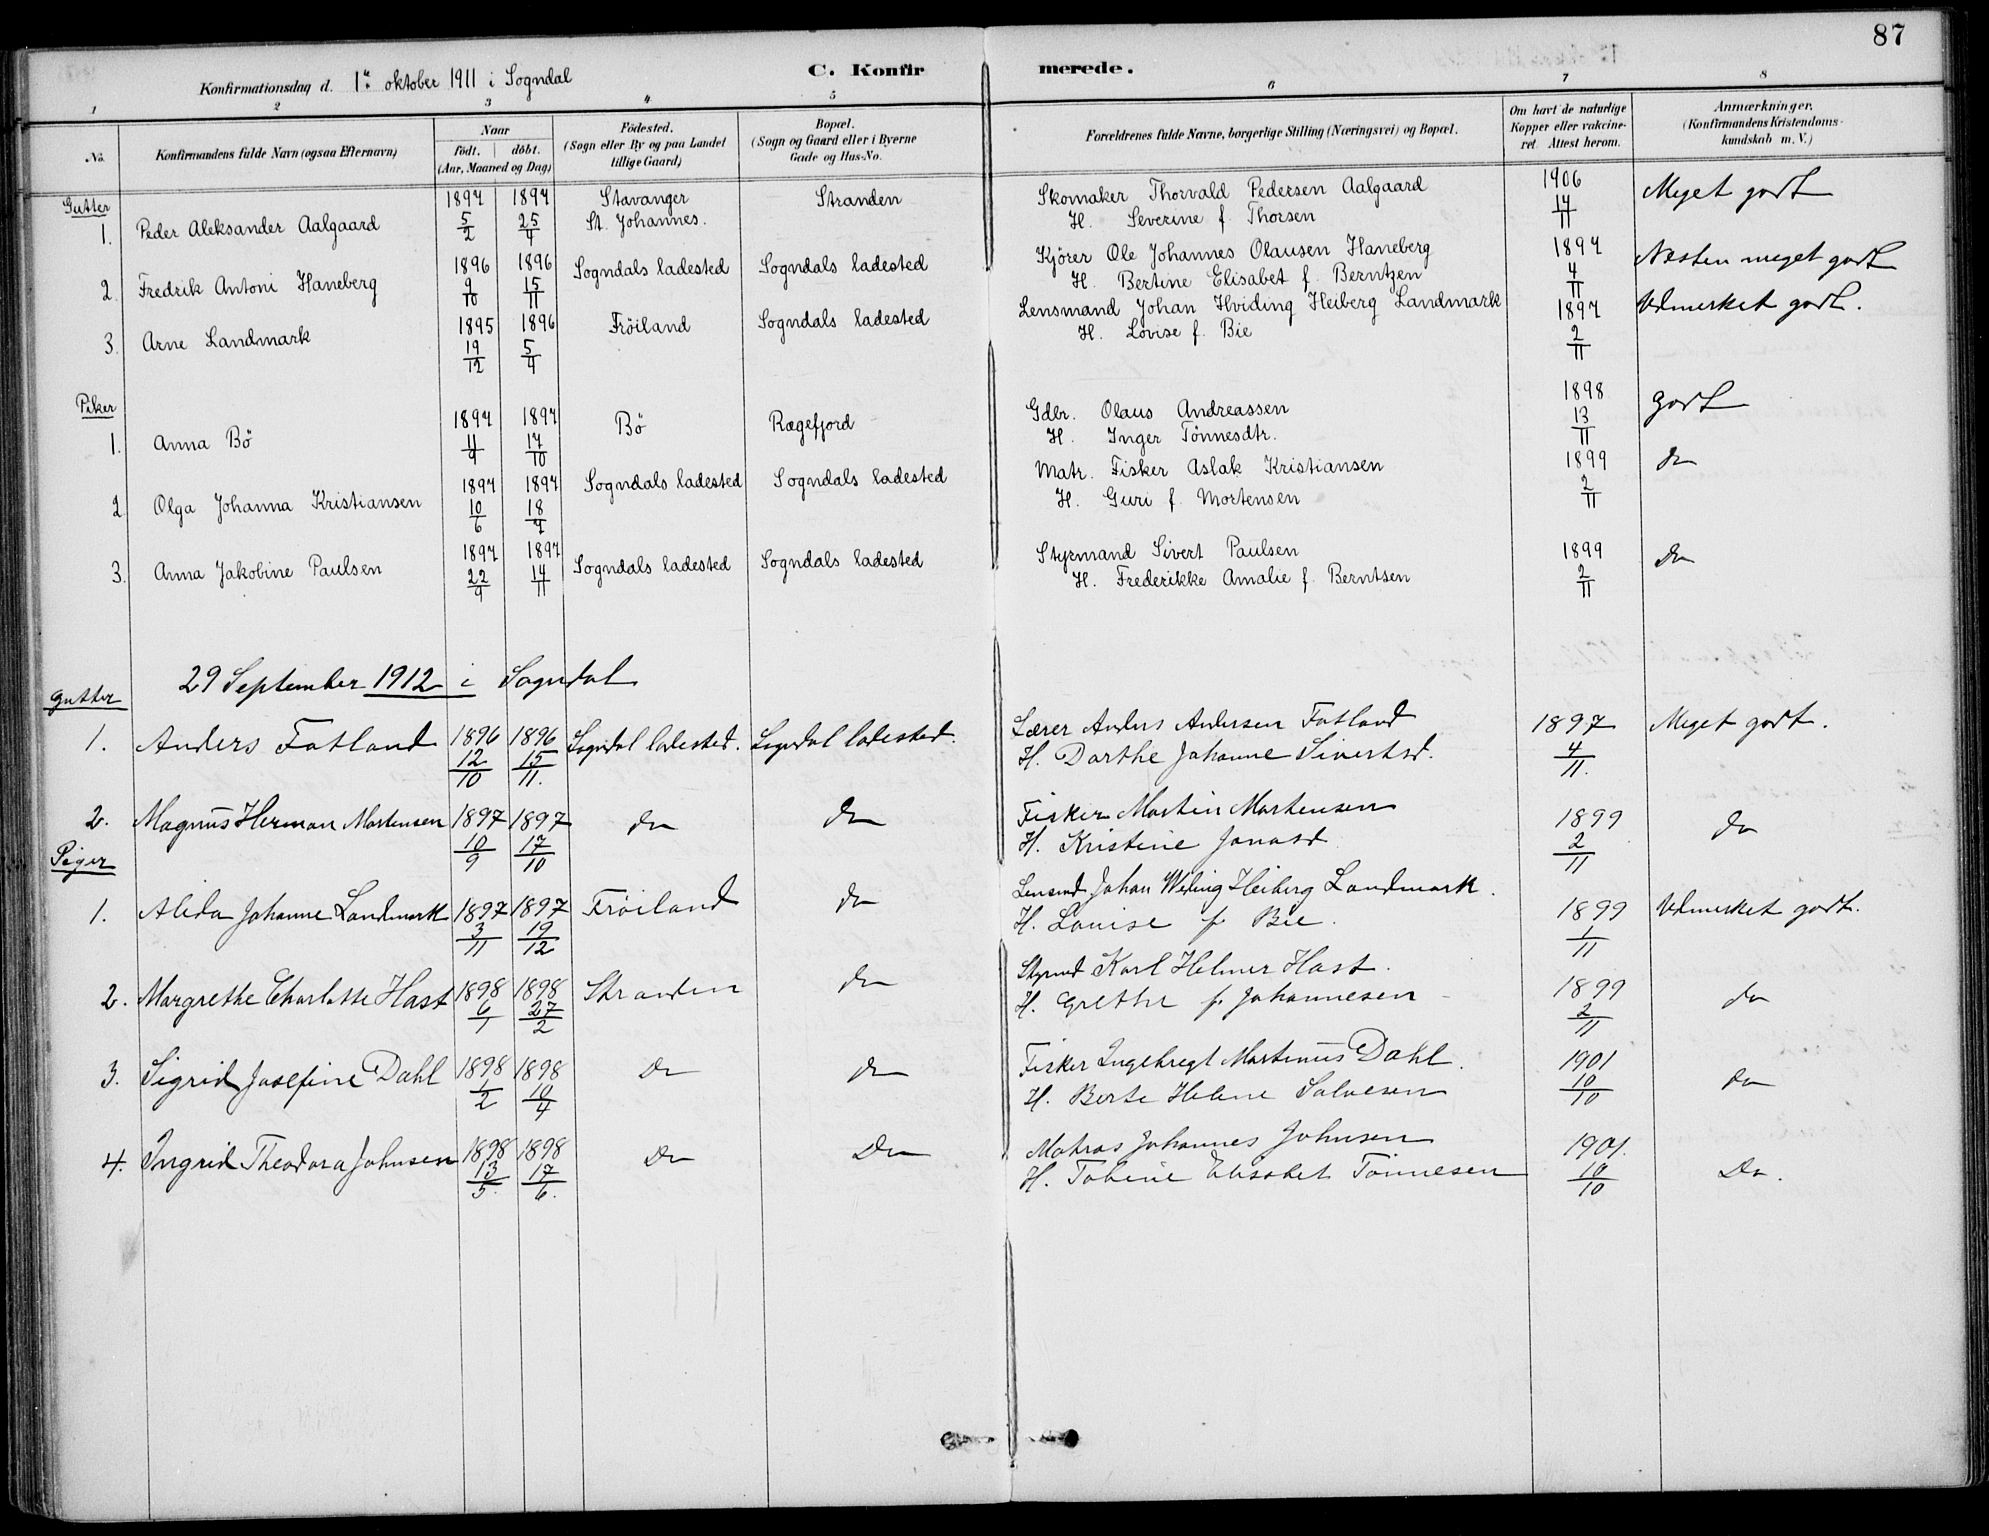 87
C. Konfirmerede.
Konfirmationsdag d. 1ste oktober 1911 i Sogndal
1 2 3 4 5 6 7 8
No. Konfirmandens fulde Navn (ogsaa Efternavn) Naar født. døbt. (Aar, Maaned og Dag) Fødested. (Sogn eller By og paa Landet tillige Gaard) Bopæl. (Sogn og Gaard eller i Byerne Gade og Hus-No. Forældrenes fulde Navne, borgerlige Stilling (Næringsvei) og Bopæl. Om havt de naturlige Kopper eller vakcineret. Attest herom. Anmærkninger. (Konfirmandens Kristendomskundskab m. V.)
Gutter
1. Peder Aleksander Aalgaard 1897 5/2 1897 25/4 Stavanger St. Johannes. Stranden Skomaker Thorvald Pedersen Aalgaard 1906 14/11 Meget godt
H. Severine f. Thorsen
2. Fredrik Antoni Haneberg 1896 9/10 1896 15/11 Sogndals ladested Sogndals ladested Kjörer Ole Johannes Olausen Haneberg 1897 4/11 Nesten meget godt
H. Bertine Elisabet f. Berntzen
3. Arne Landmark 1895 19/12 1896 5/4 Fröiland Sogndals ladested Lensmand Johan Hviding Heiberg Landmark 1897 2/11 Udmerket godt.
H. Lovise f. Bie
Piker
1. Anna Bö 1897 4/9 1897 17/10 Bö Rægefjord Gdbr. Olaus Andreassen 1898 13/11 godt
H. Inger Tönnesdtr.
2 Olga Johanna Kristiansen 1897 10/6 1897 18/7 Sogndals ladested Sogndals ladested Matr. Fisker Aslak Kristiansen 1899 2/11 do
H. Guri f. Mortensen
3. Anna Jakobine Paulsen 1897 22/9 1897 14/11 Sogndals ladested Sogndals ladested Styrmand Sivert Paulsen 1899 2/11 do
H. Frederikke Amalie f. Berntsen
29 September 1912 i Sogndal
Gutter
1. Anders Fatland 1896 12/10 1896 15/11. Sogndal ladested. Sogndal ladested. Lærer Anders Andersen Fatland 1897 4/11. Meget godt.
H. Dorthe Johanne Sivertsd.
2. Magnus Herman Martensen 1897 10/9 1897 17/10 do do Fisker Martin Martensen 1899 2/11 do
H. Kristine Jonasd
Piger
1. Alida Johanne Landmark 1897 3/11 1897 19/12 Fröiland do Lensmd Johan Widing Heiberg Landmark. 1899 1/11 Udmerket godt.
H. Louise f. Bie.
2. Margrethe Charlotte Hast 1898 6/1 1898 27/2 Stranden do Styrmd Karl Helmer Hast. 1899 2/11 do
H. Grethe f. Johannesen
3. Sigrid Josefine Dahl 1898 1/2 1898 10/4 do do Fisker Ingebregt Martinus Dahl. 1901 10/10 do
H. Berte Helene Salvesen
4. Ingrid Theodora Johnsen 1898 13/5. 1898 17/6. do Do Matros Johannes Johnsen 1901. 10/10 Do.
H. Tobine Elisabet Tönnesen